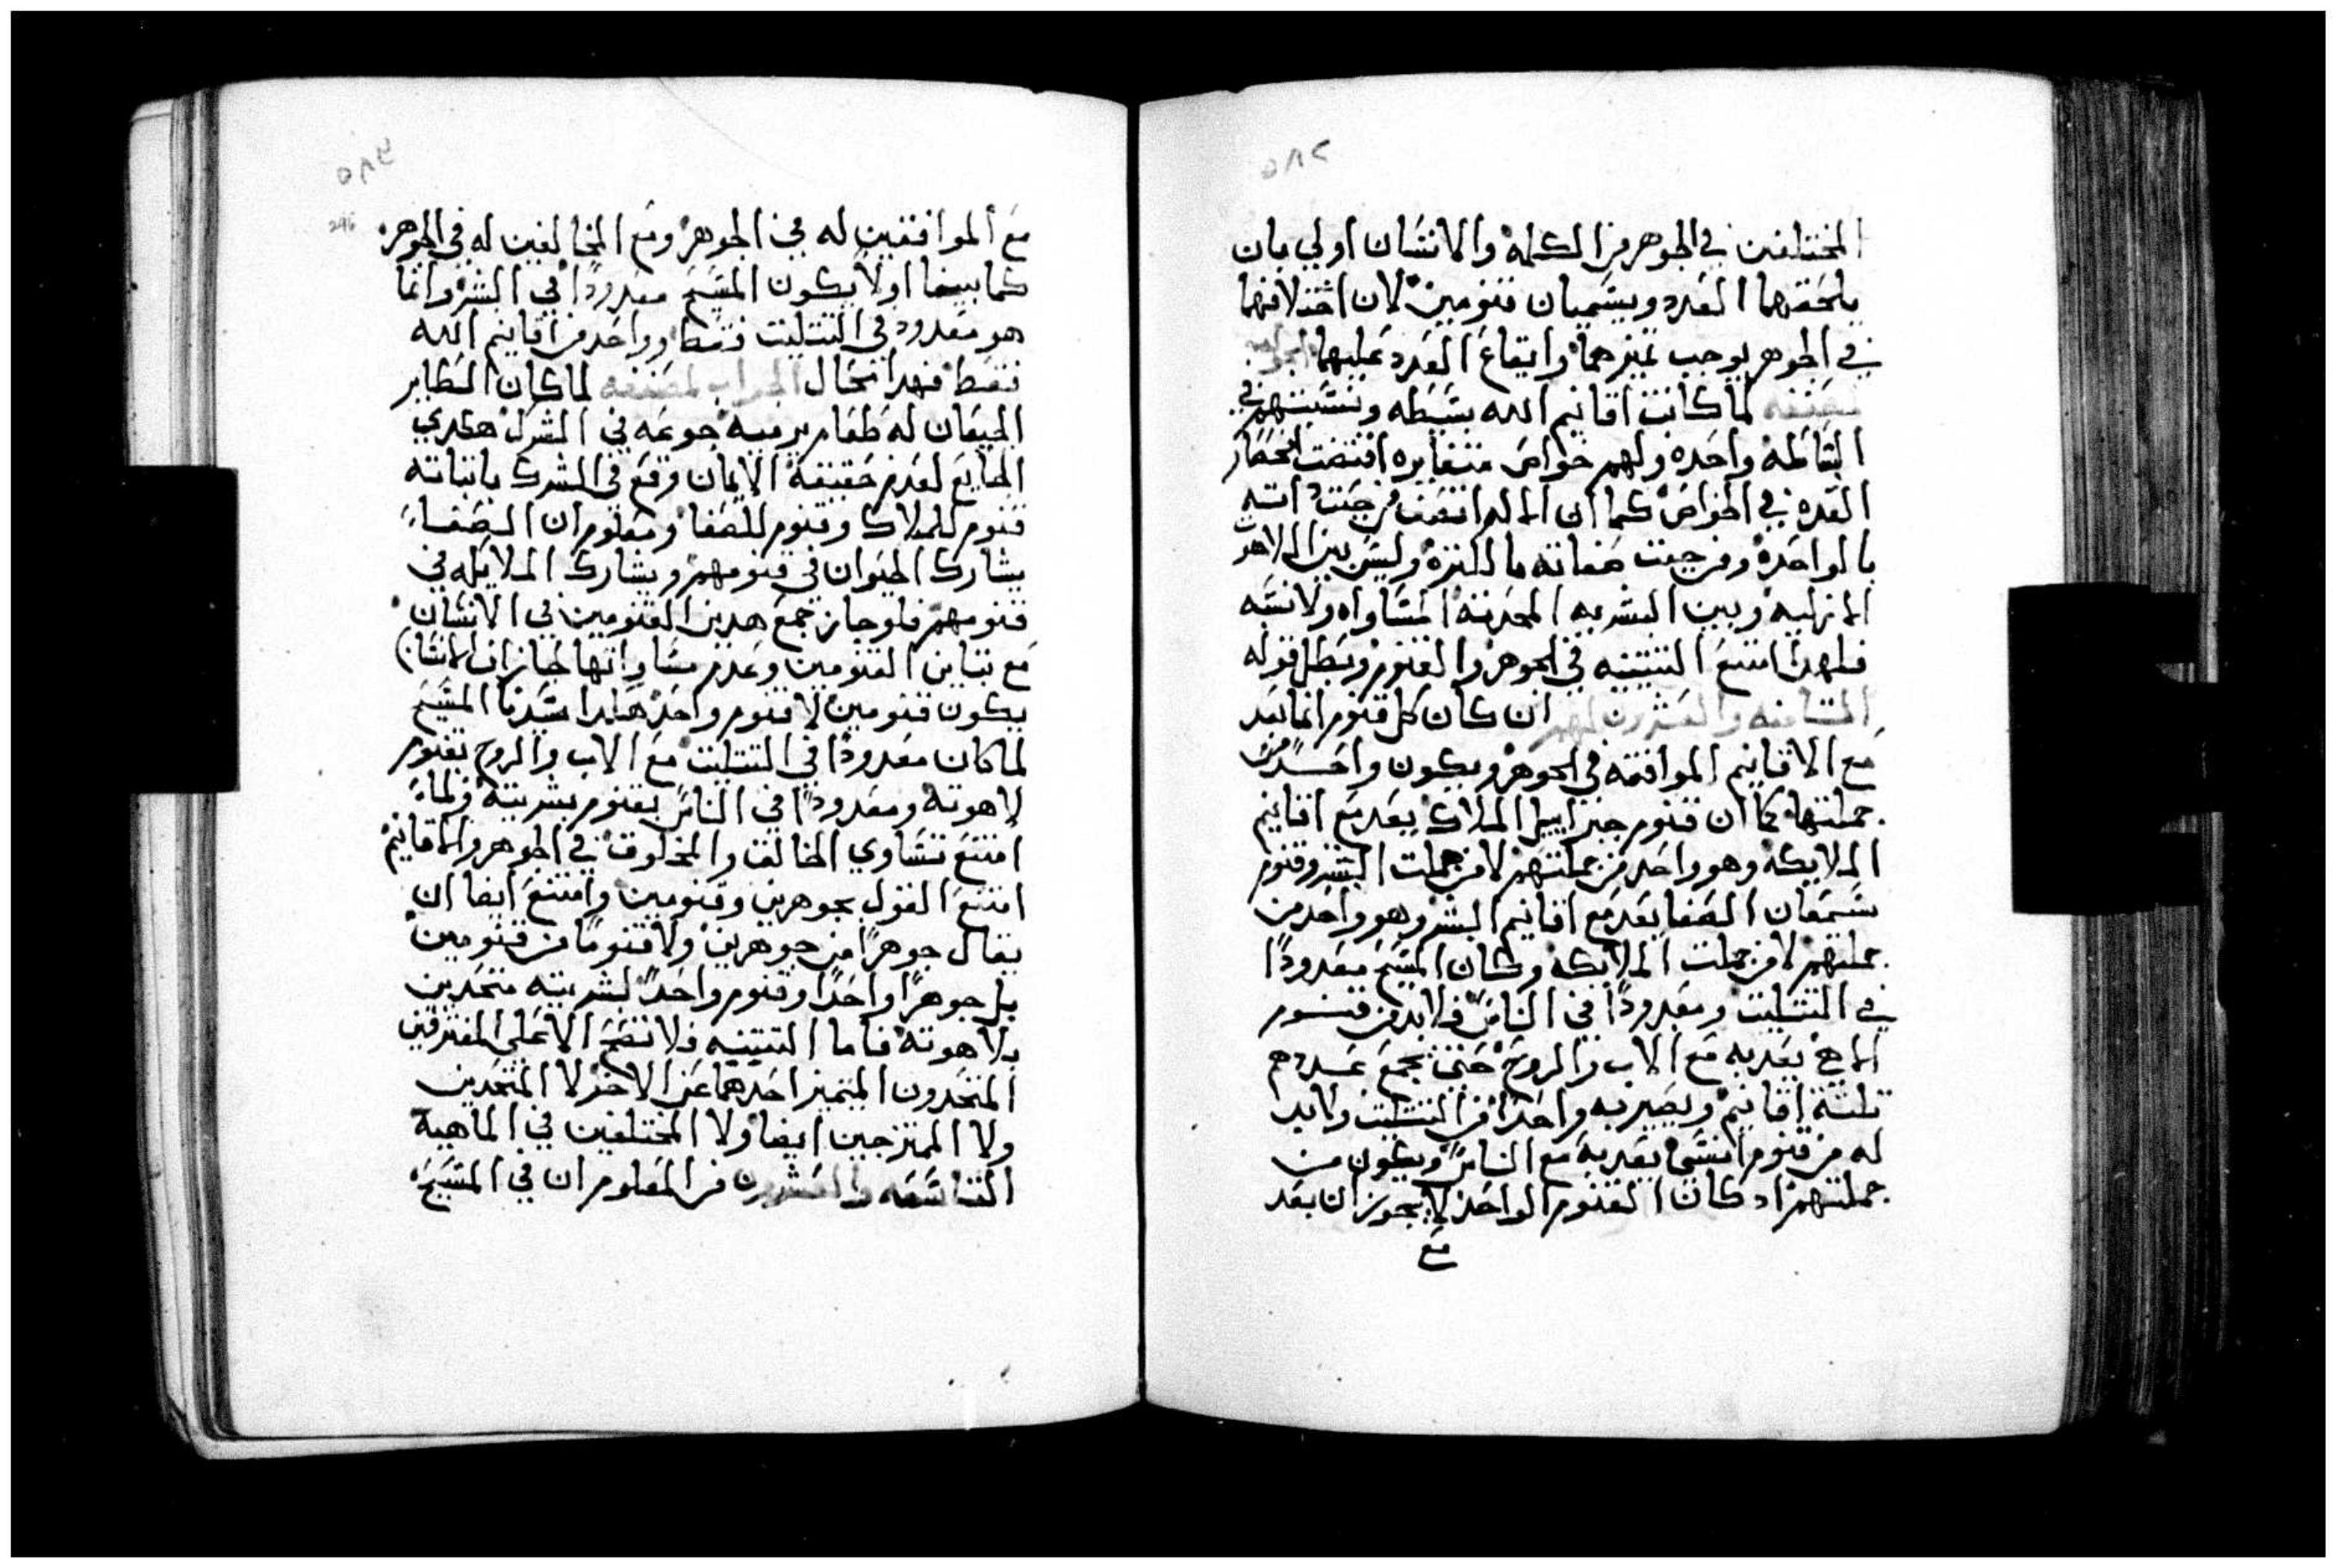 ٥٨٢
المختلفين في الجوهر من الكلمة والانسان اولي بان
يلحقهما العدد ويسميان قنومين لان اختلافهما
في الجوهر يوجب تميزهما وايقاع العدد عليهما الجواب
لمصنفه لما كانت اقانيم الله بسيطه ونسبتهم في
البساطه واحده ولهم خواص متغايره اقتضت انحصار
العدد في الخواص كما ان الاله اتصف من جهت داته
بالواحده ومن جهت صفاته بالكتره وليس بين اللاهوت
الازليه وبين البشريه المحدثه المساواه ولا نسبه
فلهدا امتنع التتنيه في الجوهر والقنوم وبطل قوله
التامنه والعشرون لهم ان كان كل قنوم انما يعد
مع الاقانيم الموافقه في الجوهر ويكون واحدًا من
جملتها كما ان قنوم جبراييل الملاك يعد مع اقانيم
الملايكه وهو واحد من جملتهم لا من جملت البشر وقنوم
سمعان الصفا يعد مع اقانيم البشر وهو واحد من
جملتهم لا من جملت الملايكه وكان المسيح معدودًا
في التتليت ومعدودًا في الناس فلابد من قنوم
الاهي يعد به مع الاب والروح حتى يجمع عددهم
تلتة اقانيم ويصير به واحدًا من التتليت ولابد
له من قنوم انسي يعد به مع الناس ويكون من
جملتهم اد كان القنوم الواحد لا يجوز ان يعد
مع
٥٨٣
296
مع الموافقين له في الجوهر ومع المخالفين له في الجوهر
كما بينا اولا يكون المسيح معدودًا في البشر وانما
هو معدود في التتليت فقط وواحد من اقانيم الله
فقط فهدا محال الجواب لمصنفه لما كان الطاير
الجيعان له طعام يرميه جوعه في الشرك هكدي
الضايع لعدم حقيقة الايمان وقع في الشرك باتباته
قنوم للملاك وقنوم للصفا ومعلوم ان الصفا
يشارك الحيوان في قنومهم ويشارك الملايكه في
قنومهم فلو جاز جمع هدين القنومين في الانسان
مع تباين القنومين وعدم مساواتها جاز ان الانسان
يكون قنومين لا قنوم واحد هكدا سيدنا المسيح
لما كان معدودًا في التتليت مع الاب والروح بقنوم
لاهوته ومعدودًا في الناس بقنوم بشريته ولما
امتنع تساوي الخالق والمخلوق في الجوهر والاقانيم
امتنع القول بجوهرين وقنومين وامتنع ايضا ان
يقال جوهرًا من جوهرين ولا قنومًا من قنومين
بل جوهرًا واحدًا وقنوم واحدًا لبشريته متحدين
بلاهوته فاما التتنيه فلا تصح الا على المفترقين
المتحدون المتميز احدهما عن الاخر لا المتحدين
ولا الممتزجين ايضا ولا المختلفين في الماهية
التاسعه والعشرون من المعلوم ان في المسيح